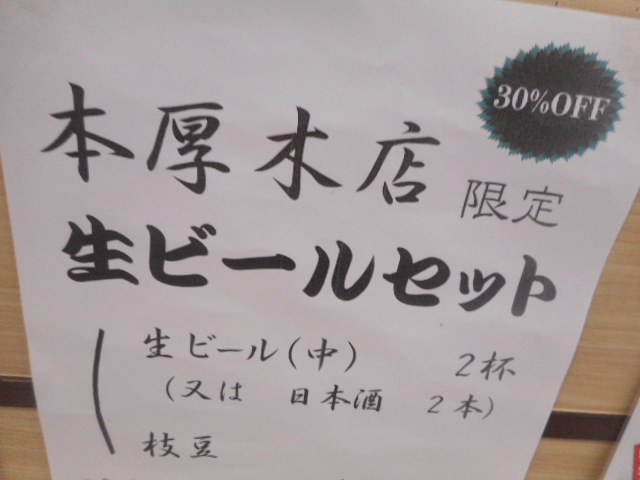 30%OFF
本厚木店 限定
生ビールセット
生ビール(中) 2杯
(又は 日本酒 2本)
枝豆